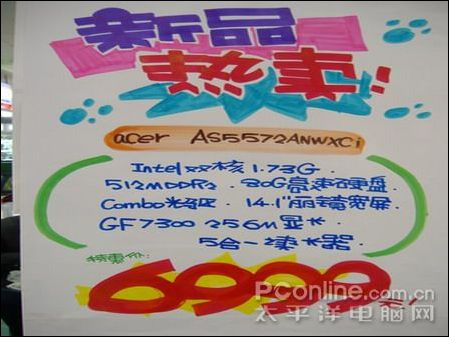 新品
热卖!
acer AS5572ANWXCi
Intel双核 1.73G.
512MDDR2. 80G高速硬盘.
Combo光驱. 14.1"丽镜宽屏.
GF7300 256M显卡.
5合一读卡器.
特惠价:
6999元!
PConline.com.cn
太平洋电脑网